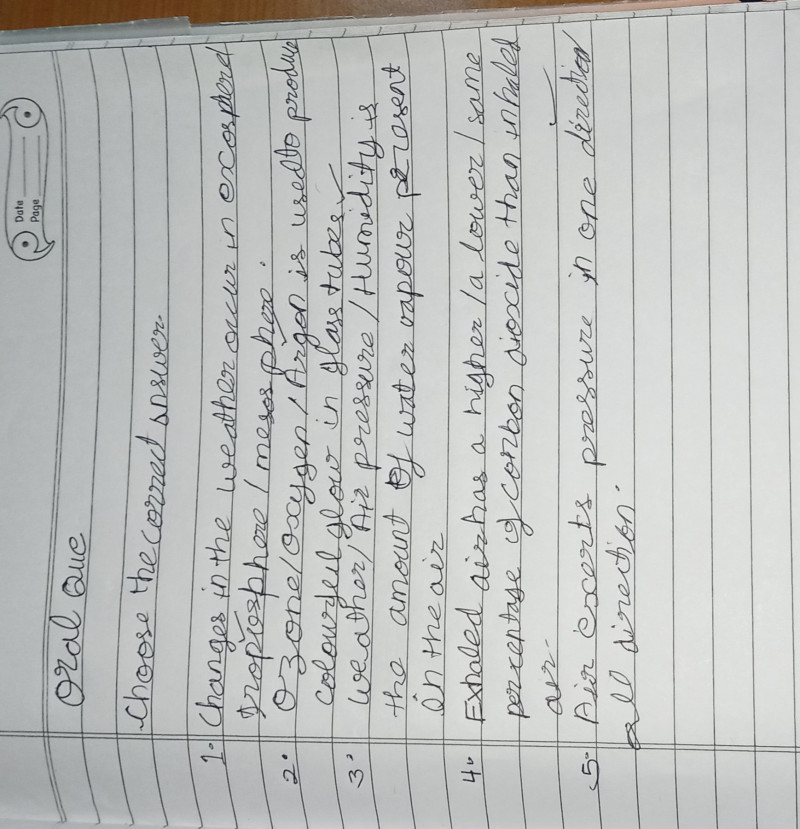 Date
Page
Oral Que
Choose the correct answer.
1. Changes in the weather occur in exosphere/
Troposphere / mesosphere.
2. Ozone/Oxygen/Argon is used to produce
colourful glow in glass tubes
3. Weather/Air pressure/Humidity is
the amount of water vapour present
in the air
4. Exhaled air has a higher/a lower/same
percentage of carbon dioxide than inhaled
air.
5. Air excerts pressure in one direction
all direction.